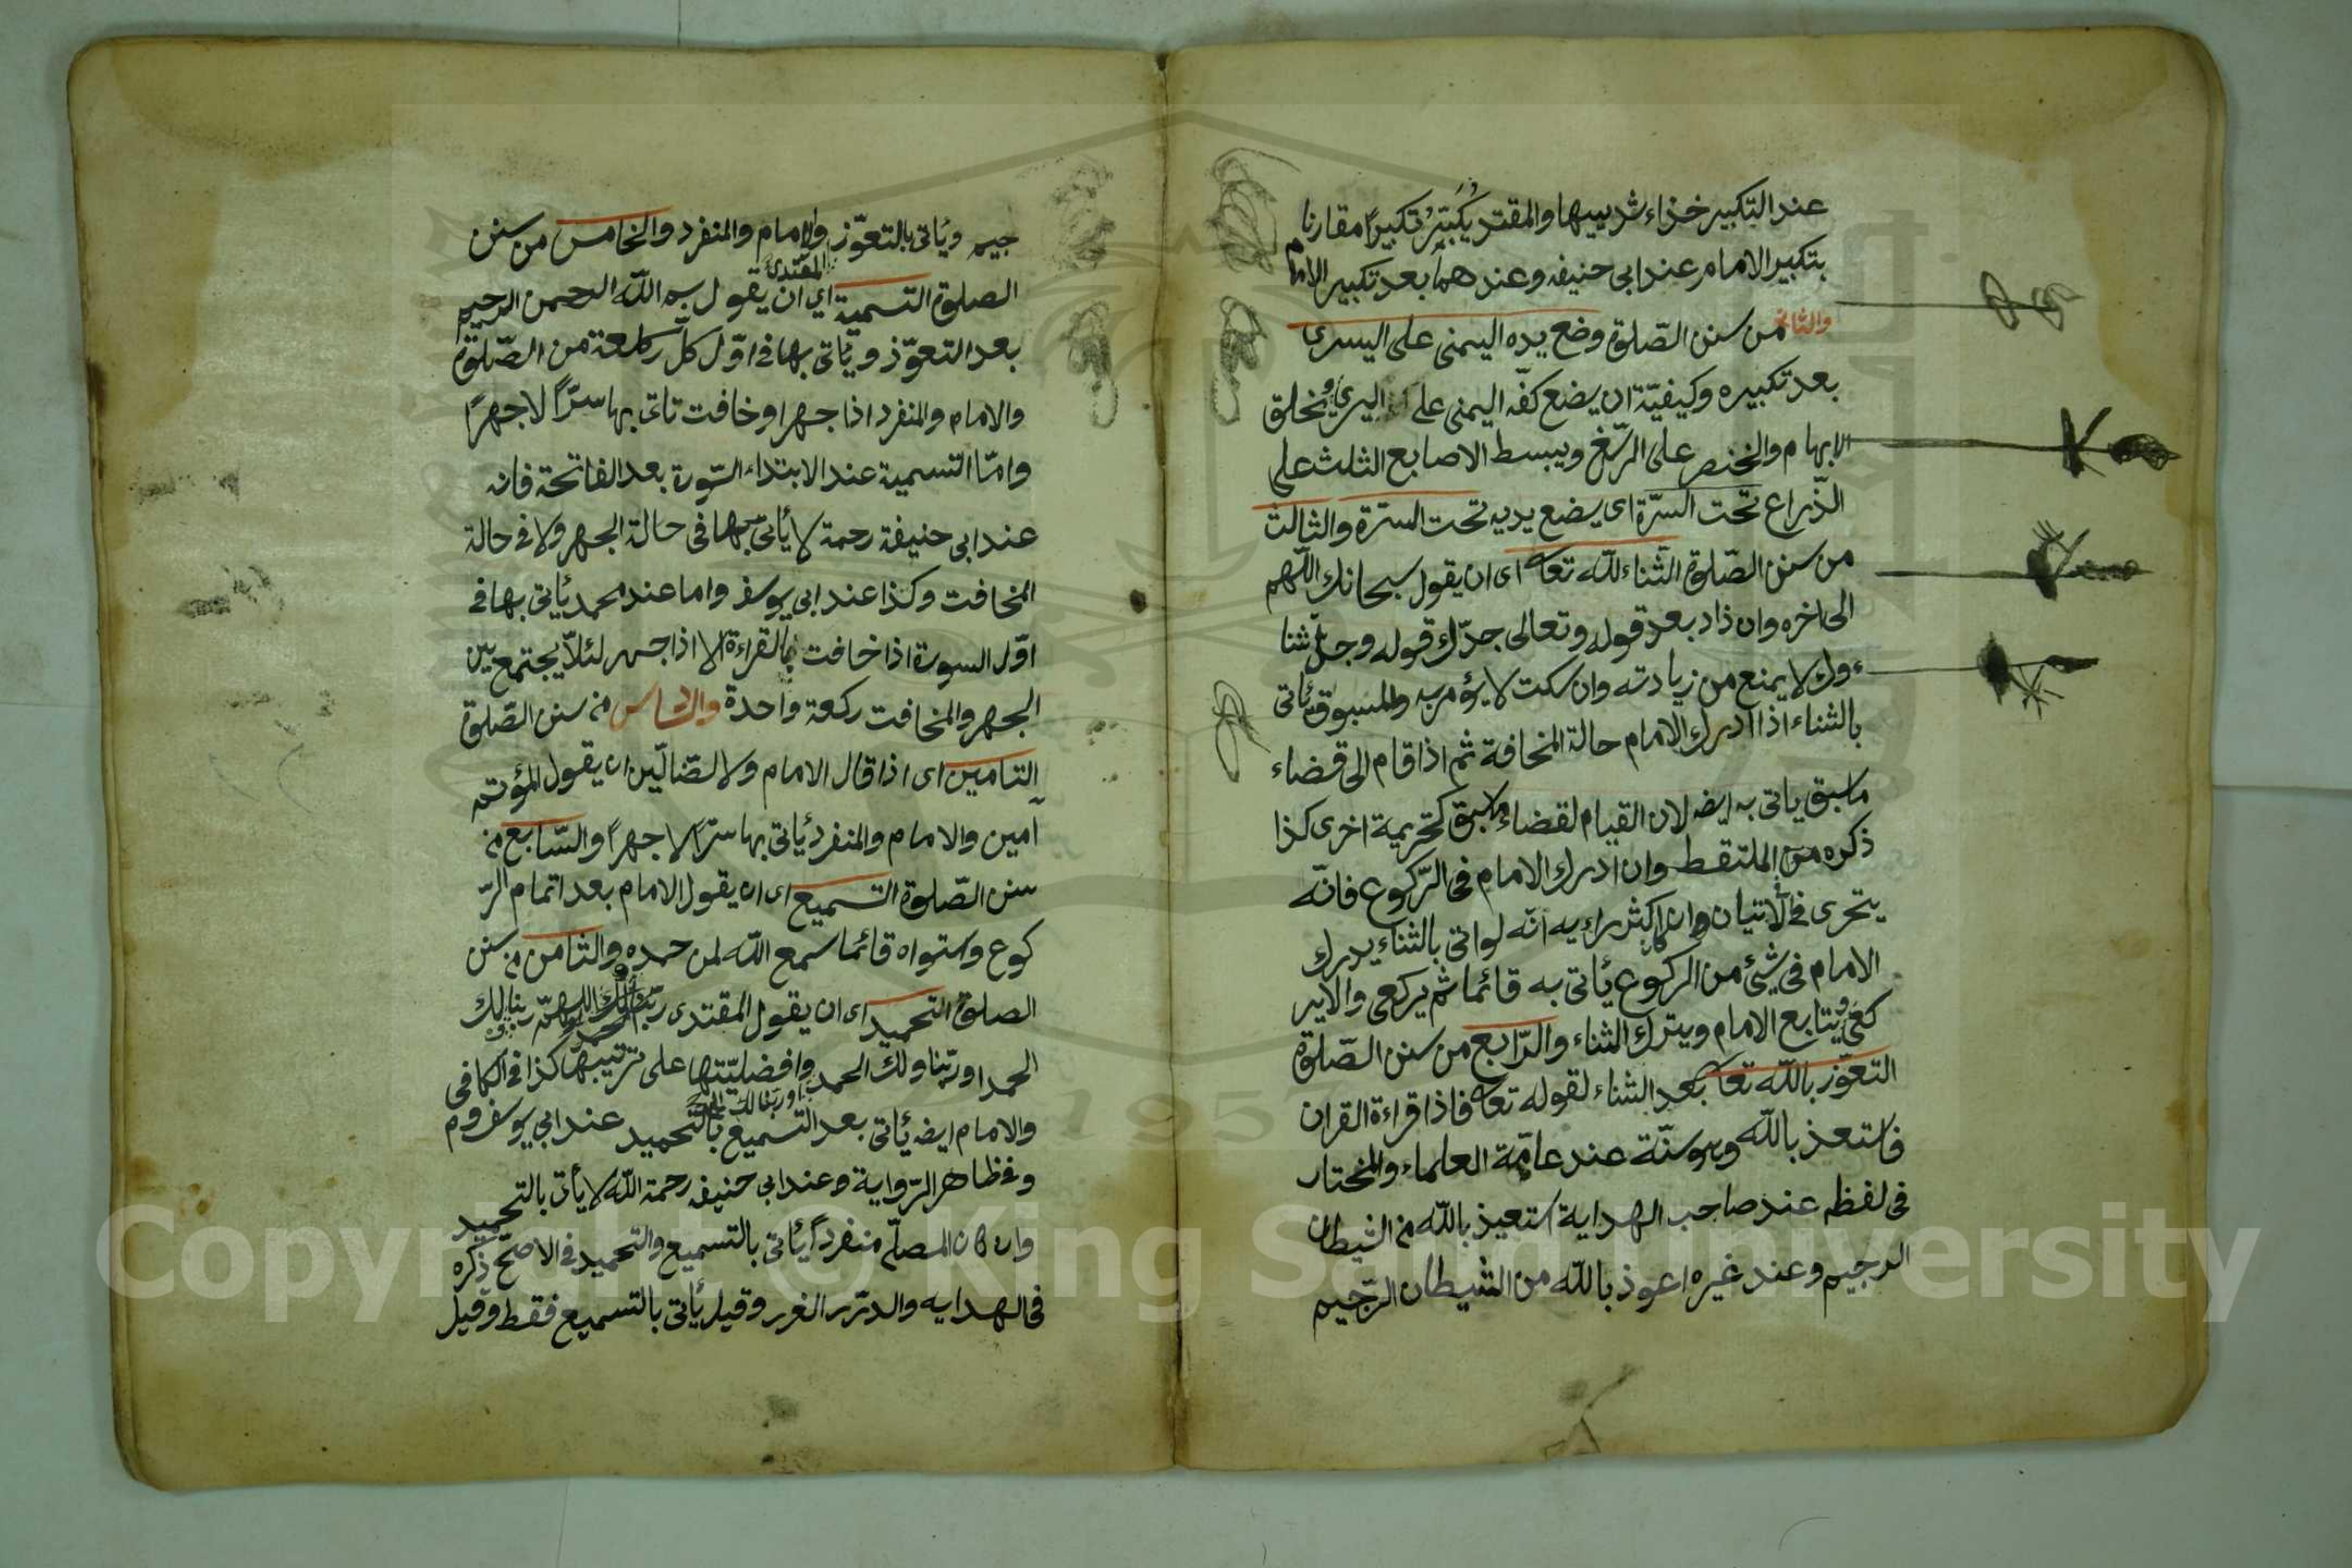 عند التكبير خذاء ثدييها والمقتد يكبّر تكبيرًا مقارنا
بتكبير الامام عند ابى حنيفه وعندهما بعد تكبير الامام
والثانى من سنن الصّلوة وضع يده اليمنى على اليسرى
بعد تكبيره وكيفيّة ان يضع كفّه اليمنى على اليسرى ويخلق
الابهام والخنصر على الرّسغ ويبسط الاصابع الثلث على
الذّراع تحت السرّة اى يضع يديه تحت السرّة والثالث
من سنن الصّلوة الثّناء للّه تعا اى ان يقول سبحانك اللّهم
الى اخره وان ذاد بعد قوله وتعالى جدّك قوله وجلّ ثنا
ءوك لا يمنع من زيادته وان سكت لا يؤمر به والمسبوق يأتى
بالثناء اذا ادرك الامام حالة المخافة ثم اذا قام الى قضاء
ما سبق ياتى به ايضه لان القيام لقضاء ما سبق كتحريمة اخرى كذا
ذكره من الملتقط وان ادرك الامام فى الرّكوع فانّه
يتحرى فى الاتيان وان كان اكثر رايه انّه لواتى بالثناء يدرك
الامام فى شئ من الركوع يأتى به قائما ثم يركعى والاير
كعى ويتابع الامام ويترك الثناء والرّابع من سنن الصّلوة
التعوّز باللّه تعا بعد الثناء لقوله تعا فاذا قراءة القران
فاستعذ باللّه وهو سنّة عند عامّة العلماء والمختار
فى لفظه عند صاحب الهداية استعيذ باللّه من الشيطان
الرجيم وعند غيره اعوذ باللّه من الشيطان الرّجيم
جيم ويأتى بالتعوّز والامام والمنفرد والخامس من سنن
المقتدى
الصلوة التسمية اى ان يقول بسم اللّه الرحمن الرحيم
بعد التعوّذ ويأتى بها فى اوّل كلّ ركعة من الصّلوة
والامام والمنفرد اذا جهرا وخافت تاتى بها سرّاً لا جهرًا
وامّا التسمية عند الابتداء السّورة بعد الفاتحة فانه
عند ابى حنيفة رحمة لا يأتى بها فى حالة الجهر ولا فى حالة
المخافت وكذا عند ابى يوسف واما عند محمد يأتى بها فى
اوّل السورة اذا خافت بالقراءة لا اذا جهر لئلاّ يجتمع بين
الجهر والمخافت ركعة واحدة والسادس من سنن الصّلوة
التامين اى اذا قال الامام ولا الضّالّين ان يقول المؤتمه
آمين والامام والمنفرد يأتى بها سرّاً لا جهراً والسّابع من
سنن الصّلوة التسميع اى ان يقول الامام بعد اتمام الرّ
كوع وستواه قائما سمع اللّه لمن حمده والثامن من سنن
الصلوة التحميد اى ان يقول المقتدى ربّنا لك الحمد اللهمّ ربنا لك
الحمد او ربّنا ولك الحمد وافضليّتها على ترتيبها كذا فى الكافى
او ربنا لك الحمد
والامام ايضه يأتى بعد التسميع بالتحميد عند ابى يوسف وم
وفى ظاهر الرّواية وعند ابى حنيفه رحمة اللّه لا يأتى بالتحميد
وان كان المصلّى منفرداً يأتى بالتسميع والتحميد فى الاصحّ ذكره
فى الهدايه والدرّر الغرر وقيل يأتى بالتسميع فقط وقيل
Copyright © King Saud University
195